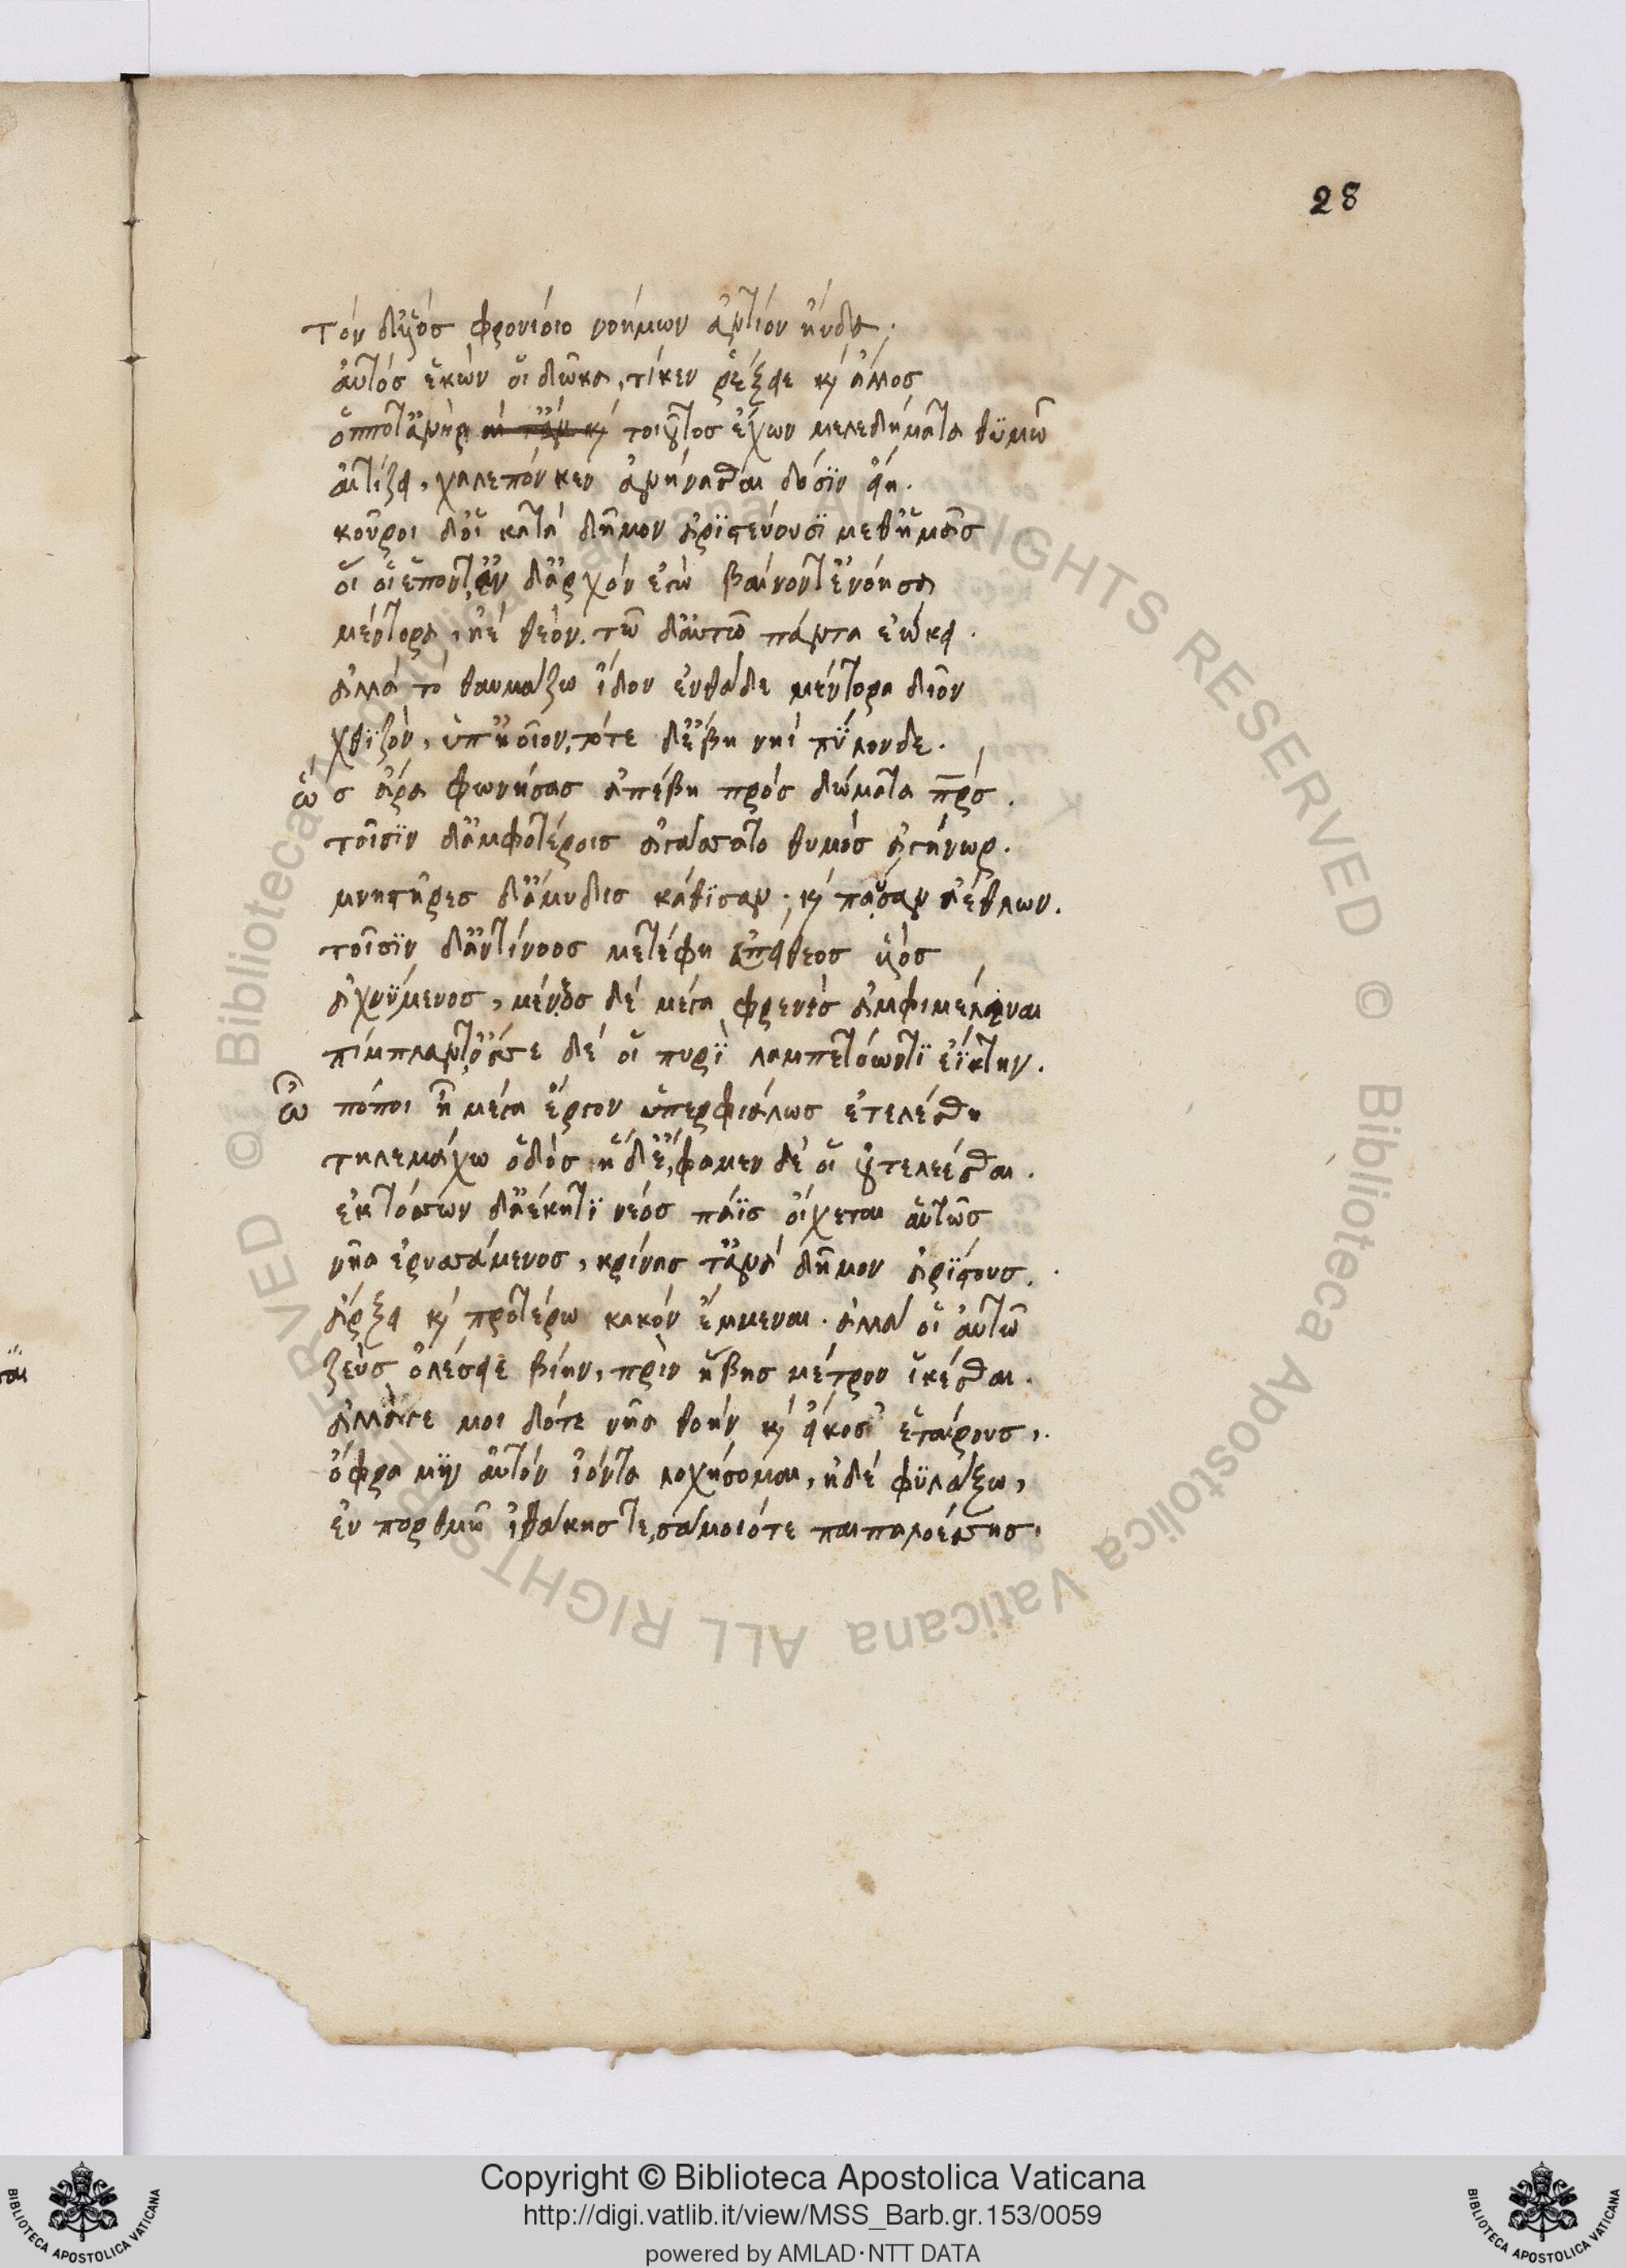 28
τὸν δ' υἱὸς φρονίοιο νοήμων ἀντίον ηὔδα·
αὐτὸς ἑκών οἱ δῶκα, τί κεν ῥέξειε καὶ ἄλλος
ὁππότ' ἀνὴρ τοιοῦτος ἔχων μελεδήματα θϋμῶ
αἰτίζει, χαλεπόν κεν ἀνήνασθαι δόσϊν εἴη.
κοῦροι δ' οἳ κατὰ δῆμον ἀρϊστεύουσϊ μεθ' ἡμᾶς
οἵ οἱ ἕποντ', ἐν δ' ἀρχὸν ἐγὼ βαίνοντ' ἐνόησα
μέντορα, ἠὲ θεόν. τῶ δ' αὐτῶ πάντα ἐώκει.
ἀλλὰ τὸ θαυμάζω ἴδον ἐνθάδε μέντορα δῖον
χθϊζὸν, ὑπηοῖον, τότε δ' ἔβη νηῒ πύλονδε.
ὣς ἄρα φωνήσας ἀπέβη πρὸς δώματα πρς.
τοῖσϊν δ' ἀμφοτέροις ἀγάσατο θυμὸς ἀγήνωρ.
μνηστῆρες δ' ἄμυδις κάθϊσαν· καὶ παῦσαν ἀέθλων.
τοῖσϊν δ' ἀντίνοος μετέφη εὐπείθεος υἱὸς
ἀχνύμενος, μένεος δὲ μέγα φρένες ἀμφιμέλαιναι
πίμπλαντ', ὄσσε δέ οἱ πυρῒ λαμπετόωντϊ ἐΐκτην.
ὢ πόποι ἦ μέγα ἔργον ὑπερφιάλως ἐτελέσθη
τηλεμάχω ὁδὸς ἥδε, φάμεν δέ οἱ οὐ τελέεσθαι.
ἐκ τόσσων δ' ἀέκητϊ νέος πάϊς οἴχεται αὔτως
νῆα ἐρυσσάμενος, κρίνας τ' ἀνὰ δῆμον ἀρίστους.
ἄρξει καὶ προτέρω κακὸν ἔμμεναι. ἀλλά οἱ αὐτῶ
ζεὺς ὀλέσειε βίην, πρὶν ἥβης μέτρον ἱκέσθαι.
ἀλλ' ἄγε μοι δότε νῆα θοὴν καὶ εἴκοσ' ἑταίρους,
ὄφρα μϊν αὐτὸν ἰόντα λοχήσομαι, ἠδὲ φϋλάξω,
ἐν πορθμῶ ἰθάκης τε, σάμοιό τε παιπαλοέσσης.
Copyright © Biblioteca Apostolica Vaticana
http://digi.vatlib.it/view/MSS_Barb.gr.153/0059
powered by AMLAD·NTT DATA